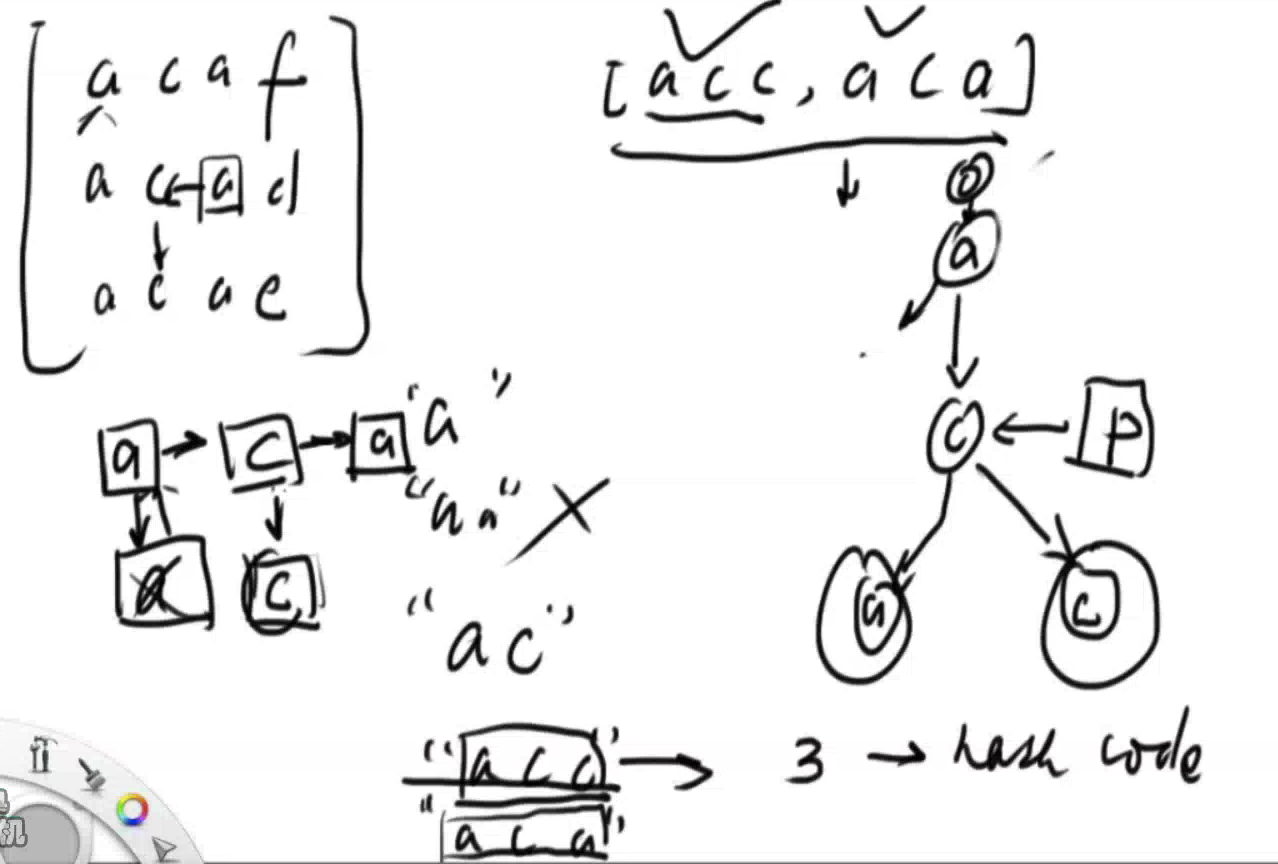 a c a f
a c a d
a c a e
[acc, aca]
a
c
p
a
c
a
c
a
a
c
"a"
"aa"
"ac"
"acc" → 3 → hash code
"aca"
机